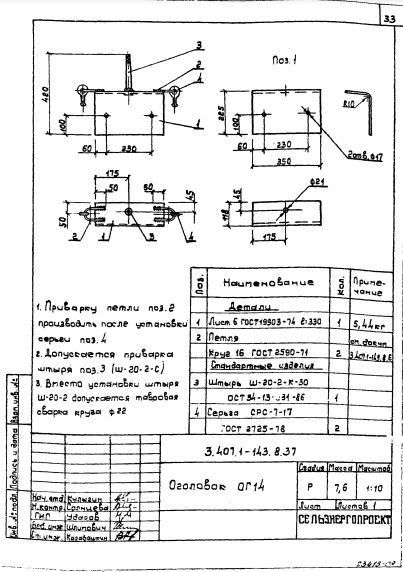 33
3
2
4
1
420
100
60
230
Поз. 1
225
100
60
230
350
R10
2отв. Ф17
175
50
50
45
50
2
1
3
4
Ф21
45
118
175
1. Приварку петли поз. 2
производить после установки
серьги поз. 4
2. Допускается приварка
штыря поз. 3 (Ш-20-2-С)
3. Вместо установки штыря
Ш-20-2 допускается тавровая
сварка круга ф22
Поз. Наименование Кол. Приме-чание
Детали
1 Лист 6 ГОСТ 19903-74 1 5,44кг
2 Петля
Круг 16 ГОСТ 2590-71 2 3.407.1-143.8.
Стандартные изделия
3 Штырь Ш-20-2-К-30
ОСТ 34-13-931-86 1
4 Серьга СРС-7-17
ГОСТ 2725-78 2
3.407.1-143.8.37
Оголовок ОГ14
Стадия Масса Масштаб
Р 7,6 1:10
Лист Листов 1
СЕЛЬЭНЕРГОПРОЕКТ
Нач. отд. Кулыгин
Н.контр. Солнцева
ГИП Ударов
Шлипович
Ст. инж.
Инв. № подл. Подпись и дата Взам. инв. №